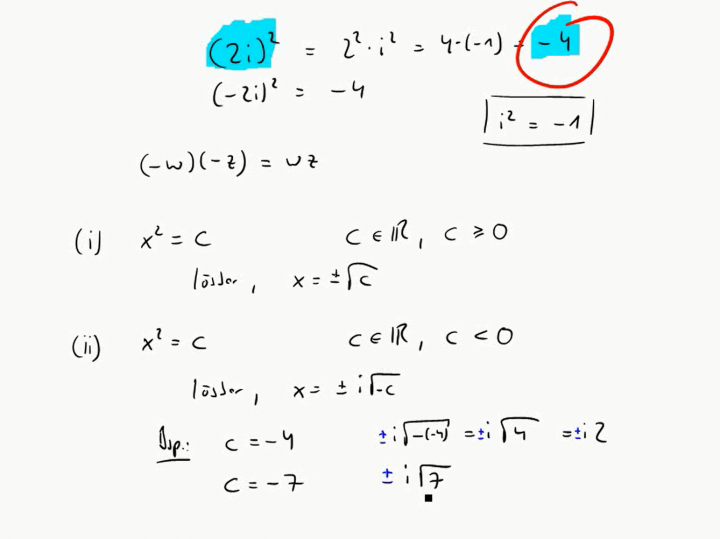 (2i)² = 2² · i² = 4·(-1) = -4
(-2i)² = -4
i² = -1
(-w)(-z) = wz
(i) x² = c c ∈ ℝ, c ≥ 0
x = ±√c
(ii) x² = c c ∈ ℝ, c < 0
x = ± i√-c
Bsp.: c = -4 ± i√-(-4) = ± i√4 = ± i 2
c = -7 ± i√7